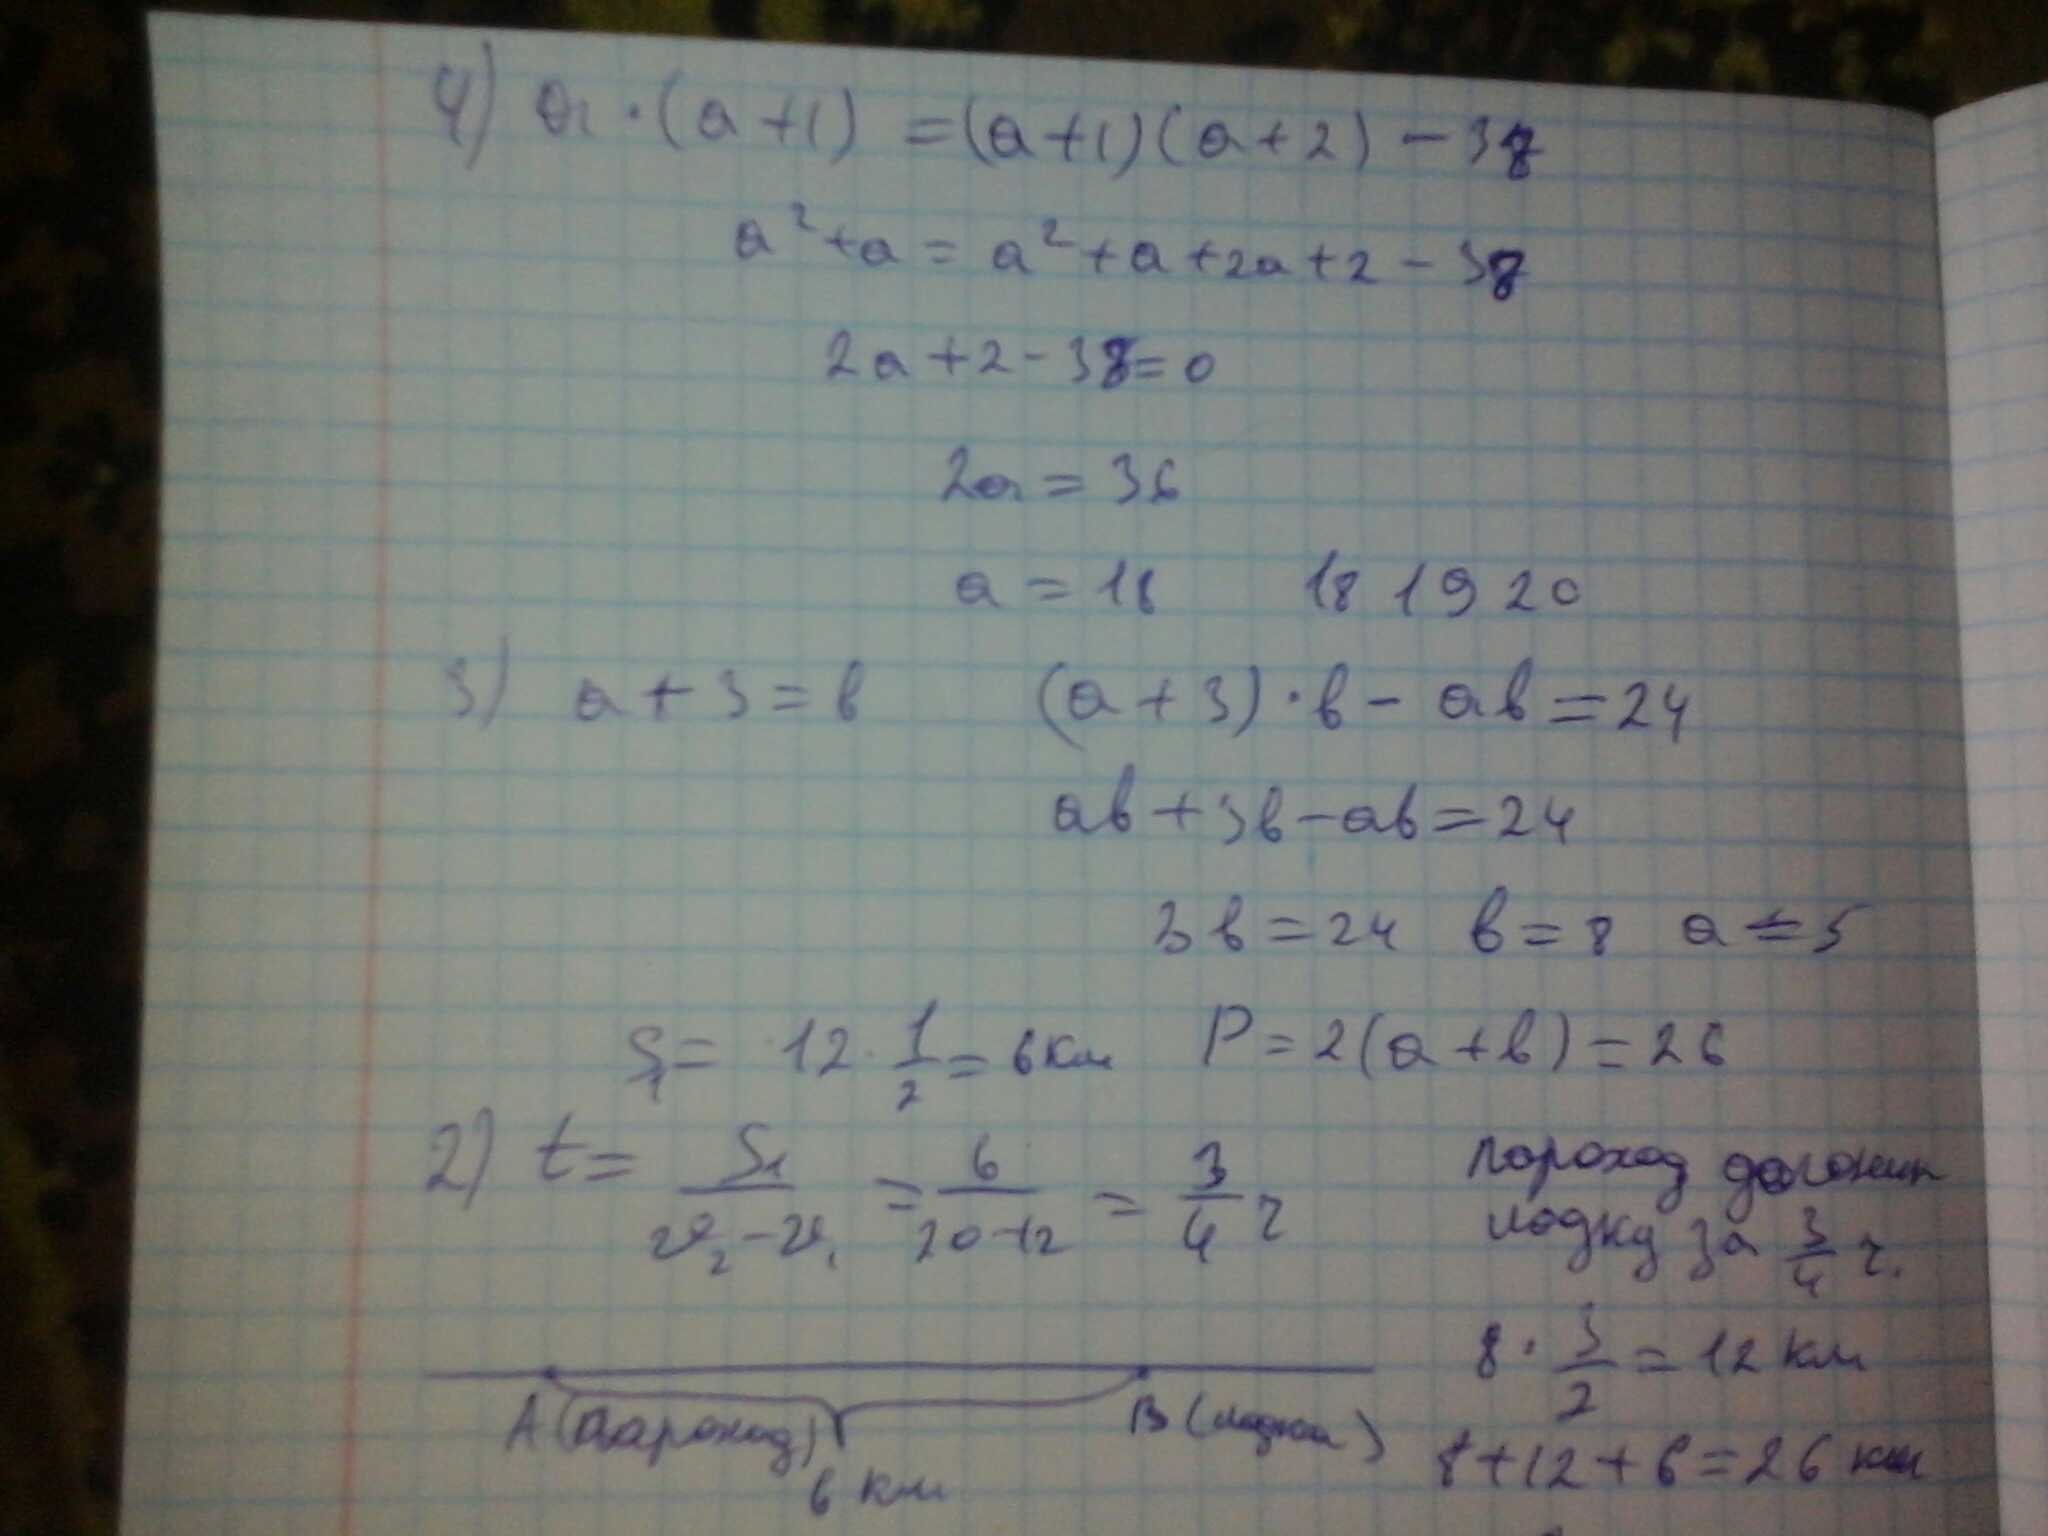 4) a · (a+1) = (a+1)(a+2) - 38
a² + a = a² + a + 2a + 2 - 38
2a + 2 - 38 = 0
2a = 36
a = 18 18 19 20
3) a + 3 = в (a + 3) · в - aв = 24
aв + 3в - aв = 24
3в = 24 в = 8 a = 5
S₁ = 12 · 1/2 = 6 км P = 2(a + в) = 26
2) t = S₁/(v₂ - v₁) = 6/(20-12) = 3/4 ч
пароход догонит
лодку за 3/4 ч.
8 · 3/2 = 12 км
A (пароход) B (лодка)
6 км
8 + 12 + 6 = 26 км